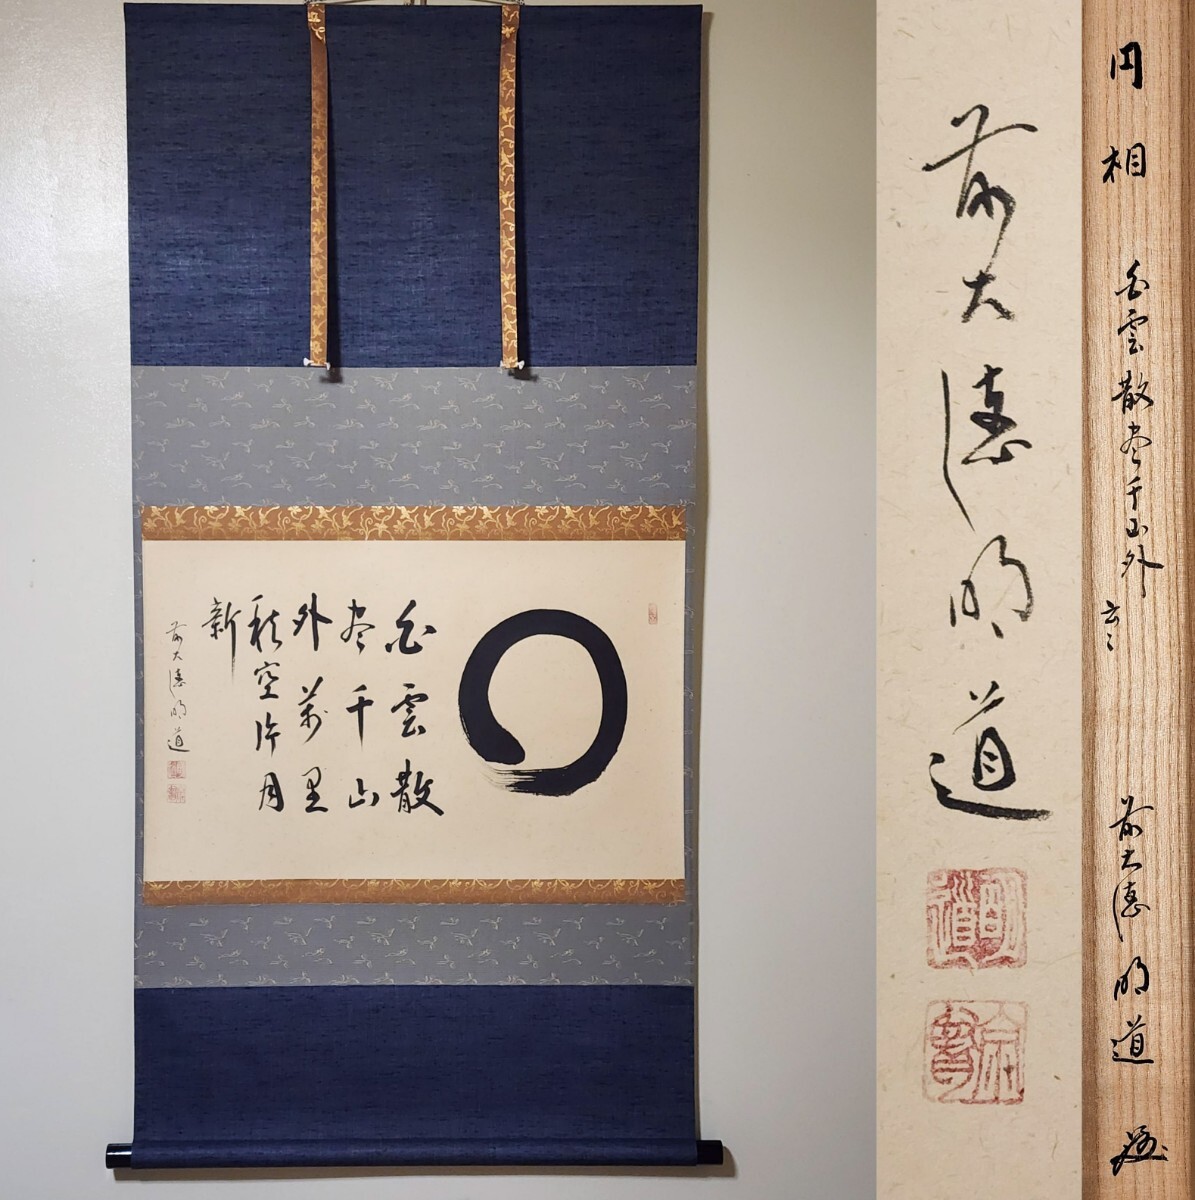 白雲散
尽千山
外萬里
秋空片月
新
前大徳明道
前大徳明道
明道
円相 白雲散尽千山外 云々 前大徳明道